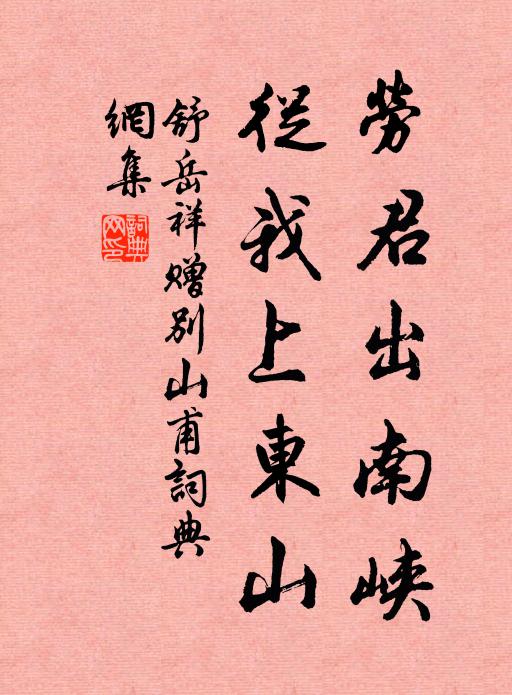 勞君出南峽
從我上東山
舒岳祥贈別山甫詞典
網集
詞典
网印